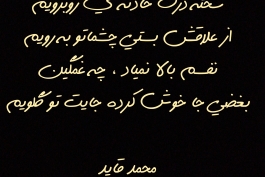 سخته درک حادثه ی روبرویم
از علاقش بستی چشماتو به رویم
نفسم بالا نمیاد ، چه غمگین
بغضی جا خوش کرده جایت تو گلویم
محمد قاید